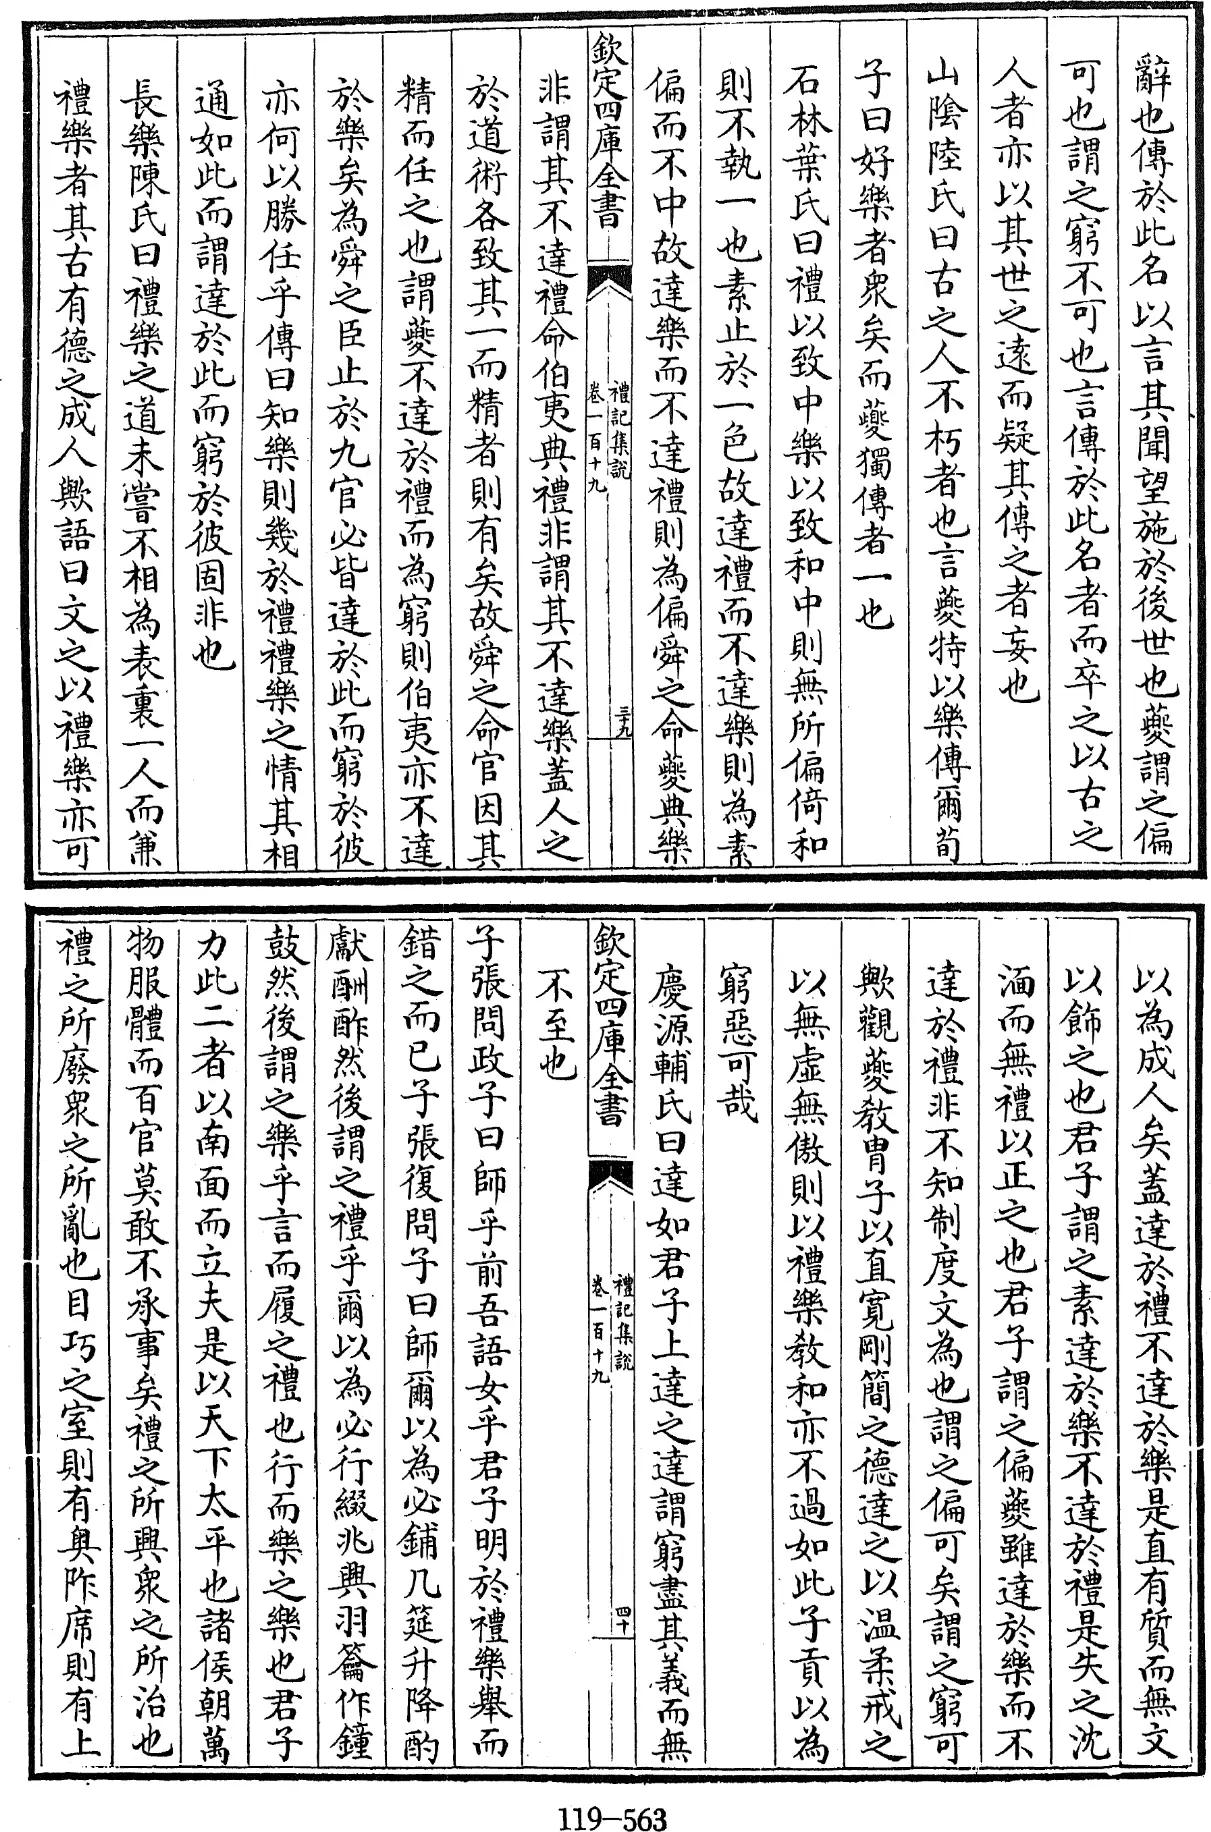 辭也傳於此名以言其聞望施於後世也夔謂之偏
可也謂之窮不可也言傳於此名者而卒之以古之
人者亦以其世之遠而疑其傳之者妄也
山陰陸氏曰古之人不朽者也言夔特以樂傳爾荀
子曰好樂者衆矣而夔獨傳者一也
石林葉氏曰禮以致中樂以致和中則無所偏倚和
則不執一也素止於一色故達禮而不達樂則為素
偏而不中故達樂而不達禮則為偏舜之命夔典樂
欽定四庫全書
禮記集說
卷一百十九
三十九
非謂其不達禮命伯夷典禮非謂其不達樂蓋人之
於道術各致其一而精者則有矣故舜之命官因其
精而任之也謂夔不達於禮而為窮則伯夷亦不達
於樂矣為舜之臣止於九官必皆達於此而窮於彼
亦何以勝任乎傳曰知樂則幾於禮禮樂之情其相
通如此而謂達於此而窮於彼固非也
長樂陳氏曰禮樂之道未嘗不相為表裏一人而兼
禮樂者其古有德之成人歟語曰文之以禮樂亦可
以為成人矣蓋達於禮不達於樂是直有質而無文
以飾之也君子謂之素達於樂不達於禮是失之沈
湎而無禮以正之也君子謂之偏夔雖達於樂而不
達於禮非不知制度文為也謂之偏可矣謂之窮可
歟觀夔教胄子以直寬剛簡之德達之以温柔戒之
以無虛無傲則以禮樂教和亦不過如此子貢以為
窮惡可哉
慶源輔氏曰達如君子上達之達謂窮盡其義而無
欽定四庫全書
禮記集說
卷一百十九
四十
不至也
子張問政子曰師乎前吾語女乎君子明於禮樂舉而
錯之而已子張復問子曰師爾以為必鋪几筵升降酌
獻酬酢然後謂之禮乎爾以為必行綴兆興羽籥作鐘
鼓然後謂之樂乎言而履之禮也行而樂之樂也君子
力此二者以南面而立夫是以天下太平也諸侯朝萬
物服體而百官莫敢不承事矣禮之所興衆之所治也
禮之所廢衆之所亂也目巧之室則有奥阼席則有上
119-563